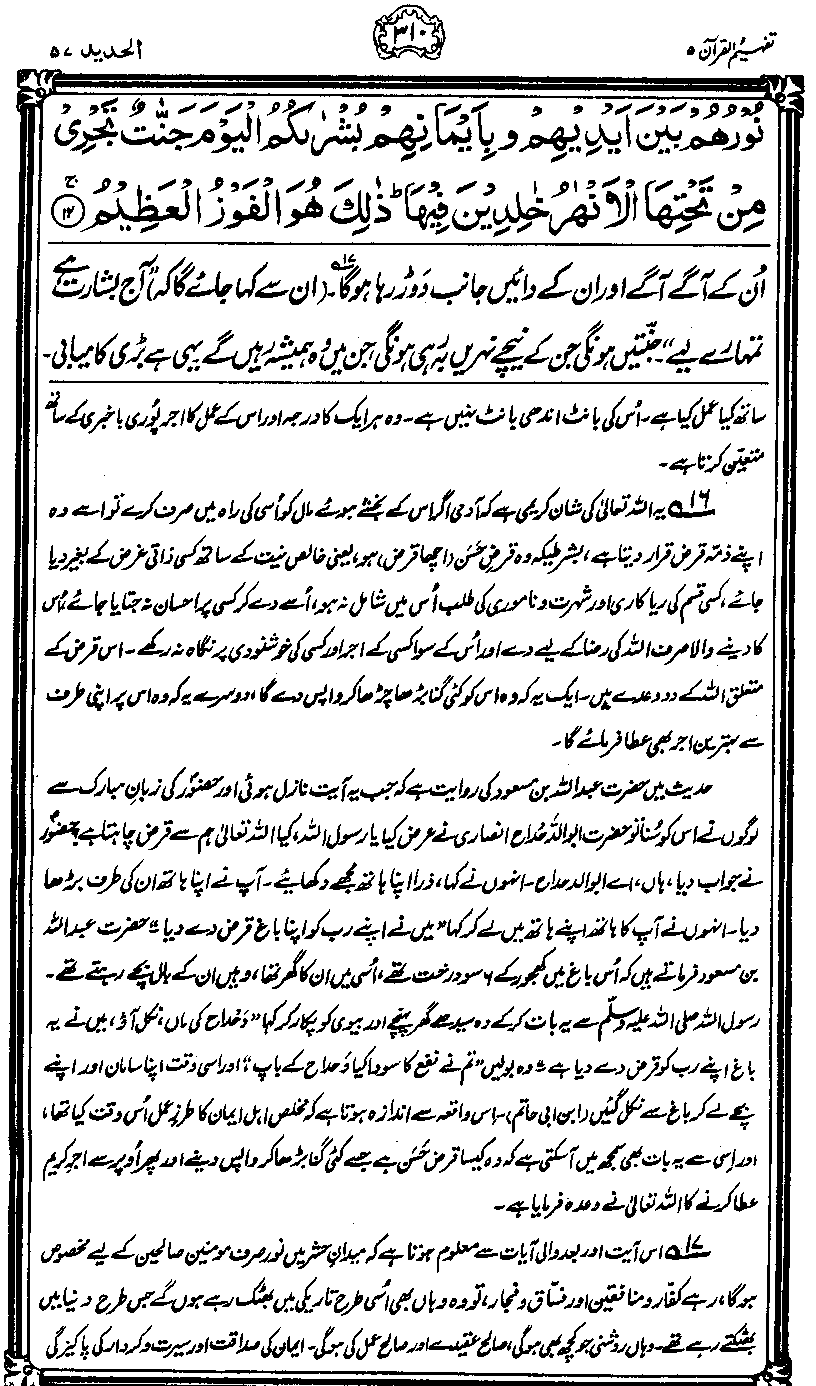 تفہیم القرآن ۵
۳۱۰
الحدید ۵۷
نُوْرُهُمْ بَيْنَ اَيْدِيْهِمْ وَبِاَيْمَانِهِمْ بُشْرٰىكُمُ الْيَوْمَ جَنّٰتٌ تَجْرِيْ
مِنْ تَحْتِهَا الْاَنْهٰرُ خٰلِدِيْنَ فِيْهَا ؕ ذٰلِكَ هُوَ الْفَوْزُ الْعَظِيْمُ ۚ ﴿۱۲﴾
اُن کے آگے آگے اور ان کے دائیں جانب دَوڑ رہا ہوگا۔۱۷ (ان سے کہا جائے گا کہ) ”آج بشارت ہے
تمہارے لیے“۔ جنّتیں ہونگی جن کے نیچے نہریں بَہ رہی ہونگی جن میں وہ ہمیشہ رہیں گے یہی ہے بڑی کامیابی۔
ساتھ کیا عمل کیا ہے۔ اُس کی بانٹ اندھی بانٹ نہیں ہے۔ وہ ہر ایک کا درجہ اور اس کے عمل کا اجر پُوری باخبری کے ساتھ
متعیّن کرتا ہے۔
۱۶ یہ اللہ تعالیٰ کی شانِ کریمی ہے کہ آدمی اگر اس کے بخشے ہوئے مال کو اُسی کی راہ میں صرف کرے تو اسے وہ
اپنے ذمّہ قرض قرار دیتا ہے، بشرطیکہ وہ قرضِ حَسَن (اچھا قرض) ہو، یعنی خالص نیت کے ساتھ کسی ذاتی غرض کے بغیر دیا
جائے، کسی قسم کی ریاکاری اور شہرت و ناموری کی طلب اُس میں شامل نہ ہو، اُسے دے کر کسی پر احسان نہ جتایا جائے، اُس
کا دینے والا صرف اللہ کی رضا کے لیے دے اور اُس کے سوا کسی کے اجر اور کسی کی خوشنودی پر نگاہ نہ رکھے۔ اس قرض کے
متعلق اللہ کے دو وعدے ہیں۔ ایک یہ کہ وہ اس کو کئی گنا بڑھا چڑھا کر واپس دے گا، دوسرے یہ کہ وہ اس پر اپنی طرف
سے بہترین اجر بھی عطا فرمائے گا۔
حدیث میں حضرت عبداللہ بن مسعود کی روایت ہے کہ جب یہ آیت نازل ہوئی اور حضورؐ کی زبان مبارک سے
لوگوں نے اس کو سُنا تو حضرت ابوالدَّحداح انصاری نے عرض کیا یا رسول اللہ، کیا اللہ تعالیٰ ہم سے قرض چاہتا ہے؟ حضورؐ
نے جواب دیا، ہاں، اے ابوالدحداح۔ انہوں نے کہا، ذرا اپنا ہاتھ مجھے دکھایئے۔ آپ نے اپنا ہاتھ ان کی طرف بڑھا
دیا۔ انہوں نے آپ کا ہاتھ اپنے ہاتھ میں لے کر کہا ”میں نے اپنے رب کو اپنا باغ قرض دے دیا“۔ حضرت عبداللہ
بن مسعود فرماتے ہیں کہ اُس باغ میں کھجور کے ۶ سو درخت تھے، اُسی میں ان کا گھر تھا، وہیں ان کے بال بچے رہتے تھے۔
رسول اللہ صلی اللہ علیہ وسلم سے یہ بات کرکے وہ سیدھے گھر پہنچے اور بیوی کو پکار کر کہا ”دَحداح کی ماں، نکل آؤ، میں نے یہ
باغ اپنے رب کو قرض دے دیا ہے“۔ وہ بولیں ”تم نے نفع کا سودا کیا دَحداح کے باپ“، اور اسی وقت اپنا سامان اور اپنے
بچے لے کر باغ سے نکل گئیں (ابن ابی حاتم)۔ اس واقعہ سے اندازہ ہوتا ہے کہ مخلص اہل ایمان کا طرزِ عمل اُس وقت کیا تھا،
اور اِسی سے یہ بات بھی سمجھ میں آسکتی ہے کہ وہ کیسا قرضِ حَسَن ہے جسے کئی گنا بڑھا کر واپس دینے اور پھر اُوپر سے اجرِ کریم
عطا کرنے کا اللہ تعالیٰ نے وعدہ فرمایا ہے۔
۱۷ اس آیت اور بعد والی آیات سے معلوم ہوتا ہے کہ میدانِ حشر میں نور صرف مومنین صالحین کے لیے مخصوص
ہوگا، رہے کفار و منافقین اور فسّاق و فجّار، تو وہ وہاں بھی اُسی طرح تاریکی میں بھٹک رہے ہوں گے جس طرح دنیا میں
بھٹکتے رہے تھے۔ وہاں روشنی جو کچھ بھی ہوگی، صالح عقیدے اور صالح عمل کی ہوگی۔ ایمان کی صداقت اور سیرت و کردار کی پاکیزگی